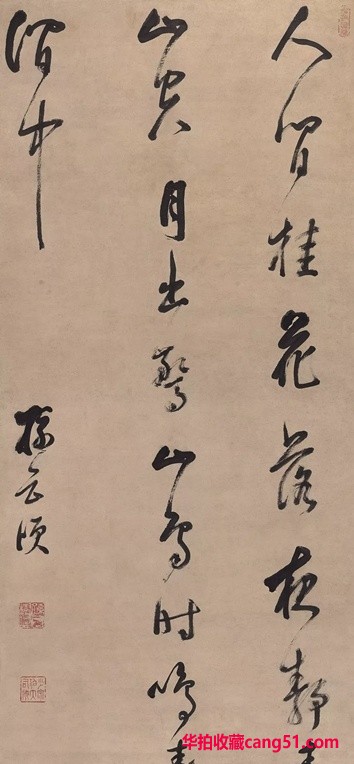 人閒桂花落夜靜春
山空月出驚山鳥時鳴春
澗中
孫岳頒
华拍收藏cang51.com